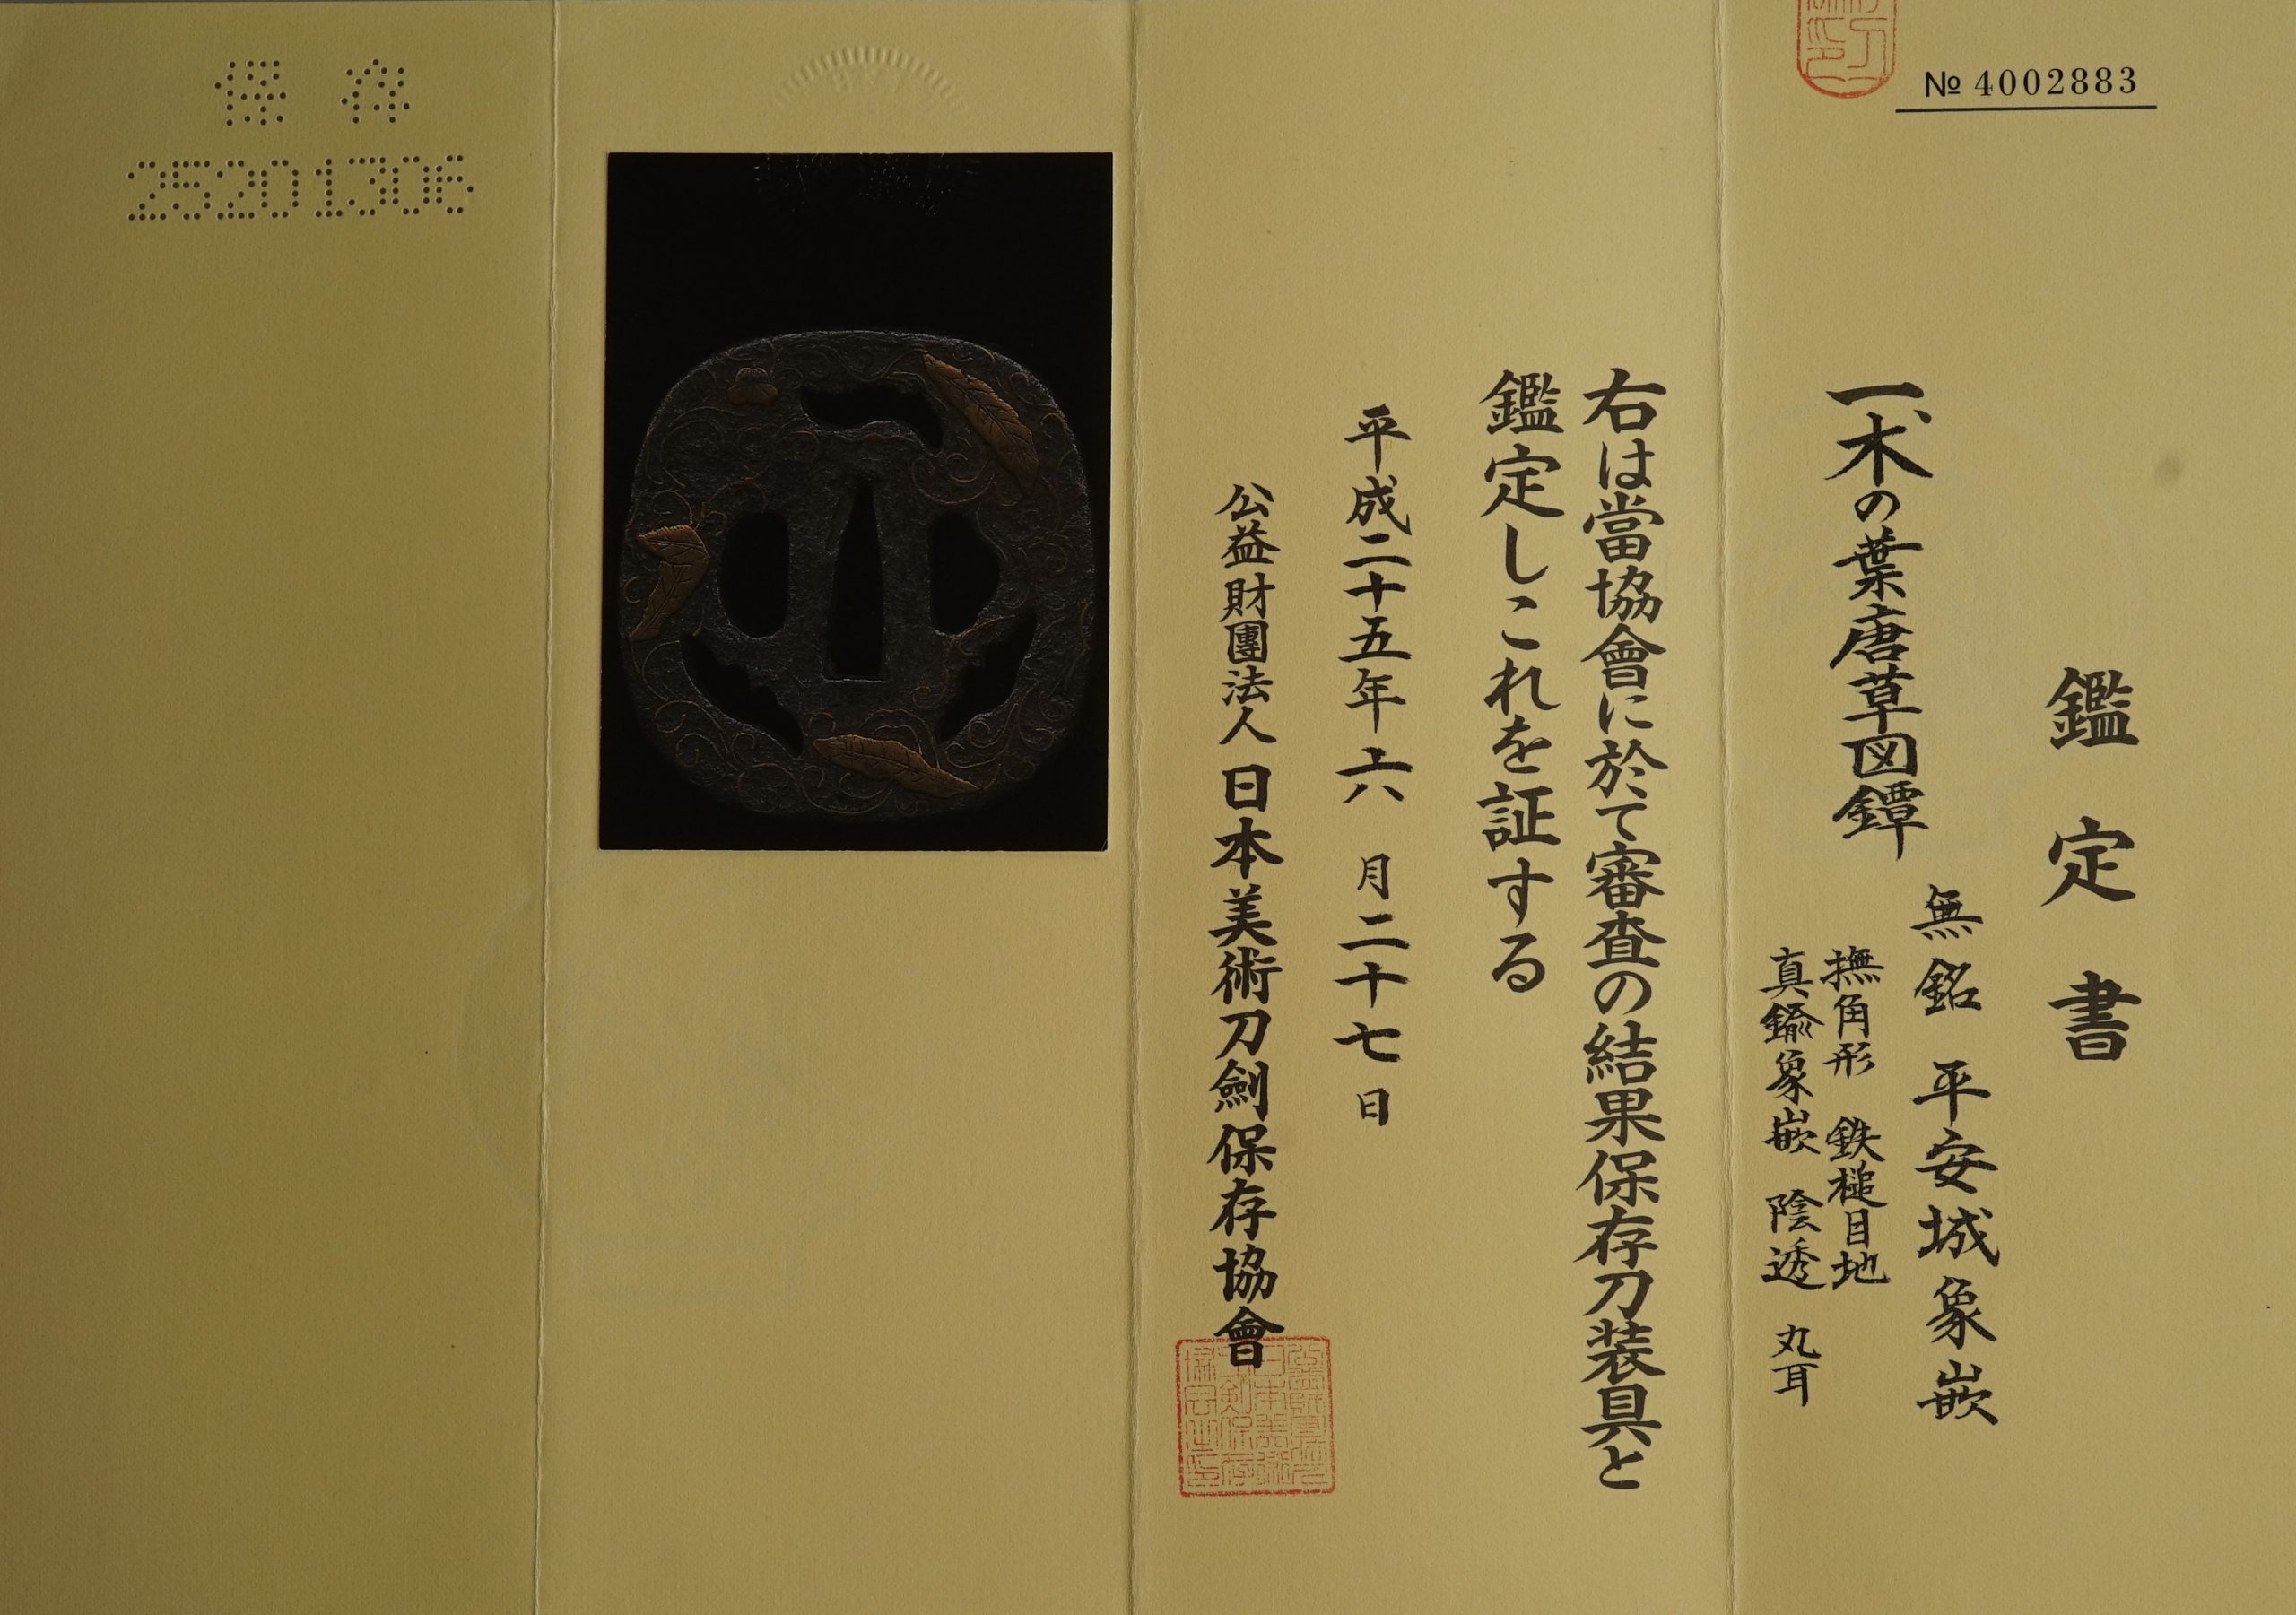 № 4002883
鑑定書
一、木の葉唐草図鐔
無銘 平安城象嵌
撫角形 鉄槌目地
真鍮象嵌 陰透 丸耳
右は當協會に於て審査の結果保存刀装具と
鑑定しこれを証する
平成二十五年六月二十七日
公益財團法人日本美術刀劍保存協會
保存
25201306